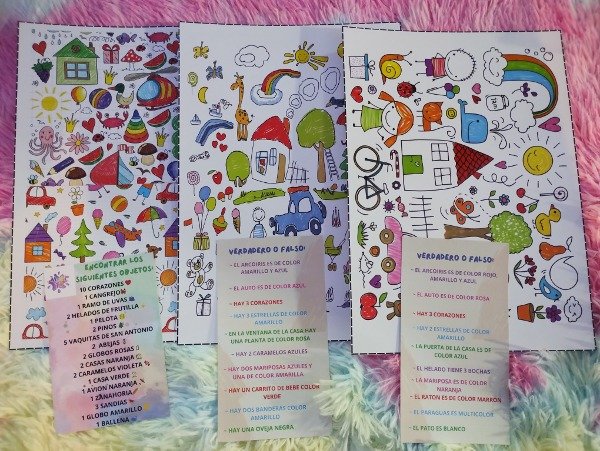 ENCONTRAR LOS
SIGUIENTES OBJETOS:
10 CORAZONES
1 CANGREJO
1 RAMO DE UVAS
2 HELADOS DE FRUTILLA
1 PELOTA
2 PINOS
5 VAQUITAS DE SAN ANTONIO
2 ABIJAS
2 GLOBOS ROSAS
2 CASAS NARANJA
2 CARAMELOS VIOLETA
1 CASA VERDE
1 AVION NARANJA
1 ZANAHORIA
3 SANDIAS
1 GLOBO AMARILLO
1 BALLENA
VERDADERO O FALSO:
- EL ARCOIRIS ES DE COLOR
AMARILLO Y AZUL
- EL AUTO ES DE COLOR AZUL
- HAY 3 CORAZONES
- HAY 3 ESTRELLAS DE COLOR
AMARILLO
- EN LA VENTANA DE LA CASA HAY
UNA PLANTA DE COLOR ROSA
- HAY 2 CARAMELOS AZULES
- HAY DOS MARIPOSAS AZULES Y
UNA DE COLOR AMARILLA
- HAY UN CARRITO DE BEBE COLOR
VERDE
- HAY DOS BANDERAS COLOR
AMARILLO
- HAY UNA OVEJA NEGRA
VERDADERO O FALSO:
- EL ARCOIRIS ES DE COLOR ROJO,
AMARILLO Y AZUL
- EL AUTO ES DE COLOR ROSA
- HAY 3 CORAZONES
- HAY 2 ESTRELLAS DE COLOR
AMARILLO
- LA PUERTA DE LA CASA ES DE
COLOR AZUL
- EL HELADO TIENE 3 BOCHAS
- LA MARIPOSA ES DE COLOR
NARANJA
- EL RATON ES DE COLOR MARRON
- EL PARAGUAS ES MULTICOLOR
- EL PATO ES BLANCO